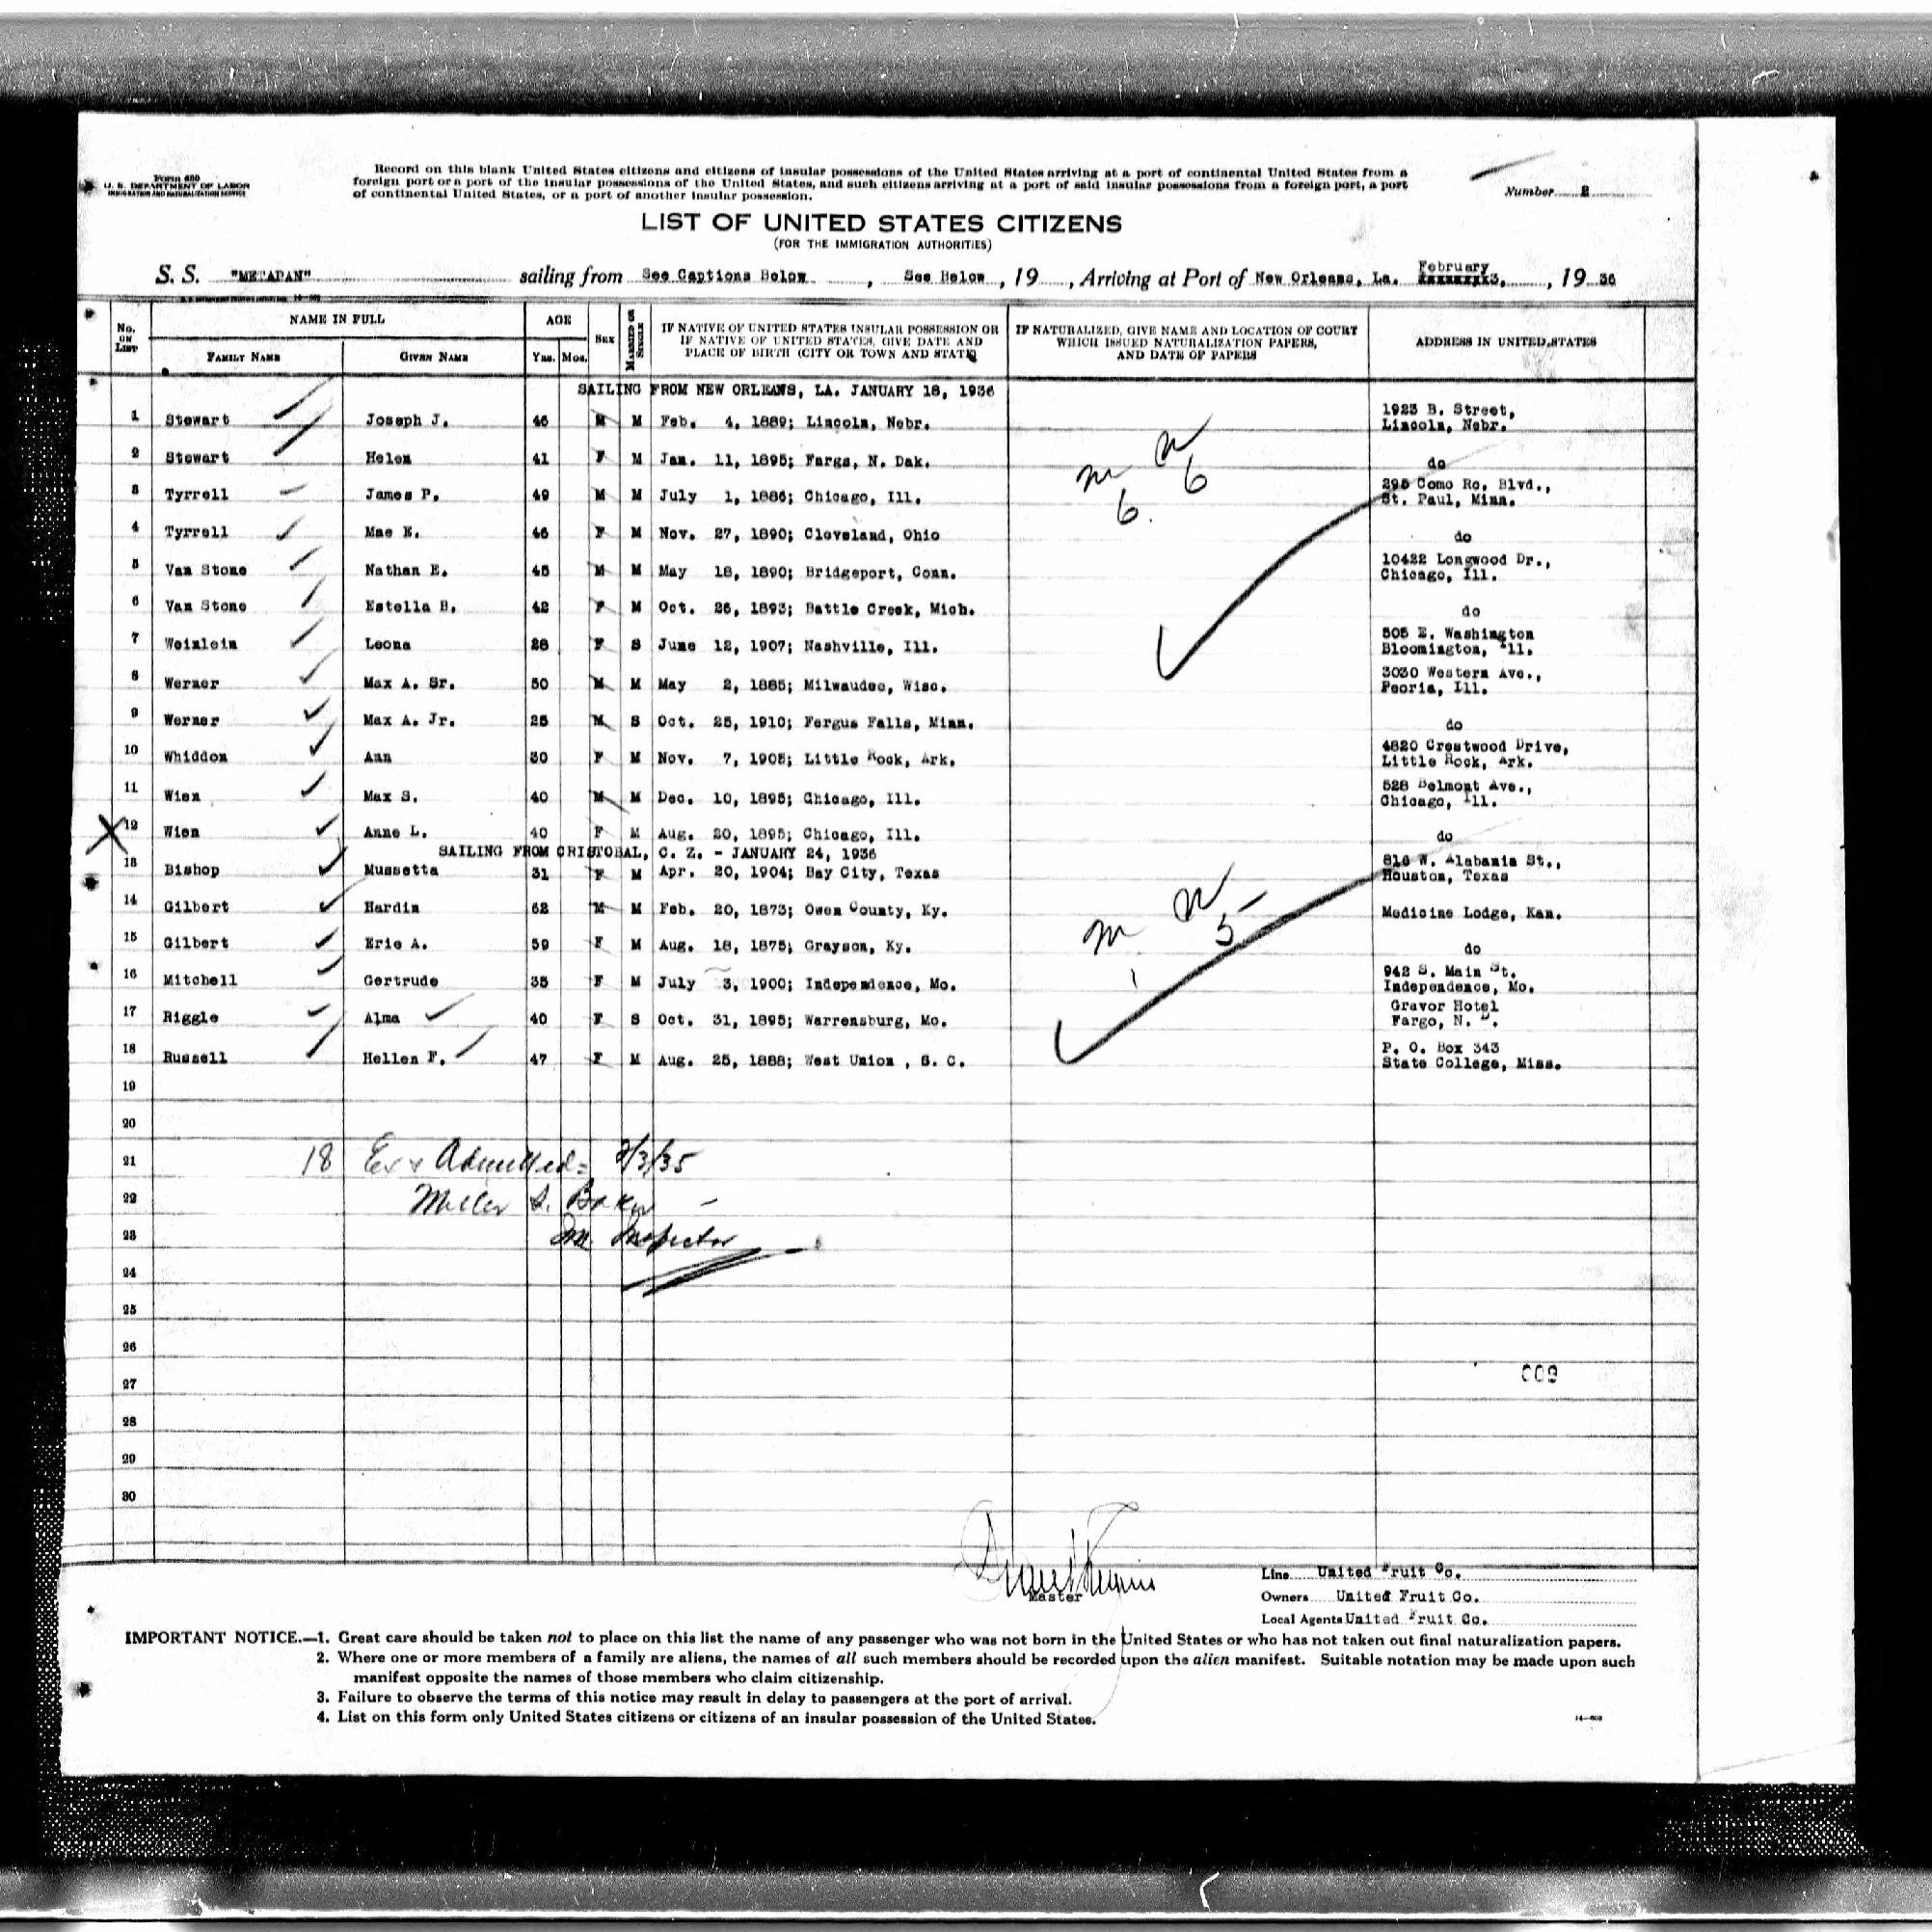 Form 630
U. S. DEPARTMENT OF LABOR
IMMIGRATION AND NATURALIZATION SERVICE
Record on this blank United States citizens and citizens of insular possessions of the United States arriving at a port of continental United States from a
foreign port or a port of the insular possessions of the United States, and such citizens arriving at a port of said insular possessions from a foreign port, a port
of continental United States, or a port of another insular possession.
Number 2
LIST OF UNITED STATES CITIZENS
(FOR THE IMMIGRATION AUTHORITIES)
S. S. "METAPAN" sailing from See Captions Below , See Below , 19 , Arriving at Port of New Orleans, La. February 3, , 19 36
No. ON LIST NAME IN FULL AGE SEX MARRIED OR SINGLE IF NATIVE OF UNITED STATES INSULAR POSSESSION OR IF NATIVE OF UNITED STATES, GIVE DATE AND PLACE OF BIRTH (CITY OR TOWN AND STATE) IF NATURALIZED, GIVE NAME AND LOCATION OF COURT WHICH ISSUED NATURALIZATION PAPERS, AND DATE OF PAPERS ADDRESS IN UNITED STATES
FAMILY NAME GIVEN NAME YRS. MOS.
SAILING FROM NEW ORLEANS, LA. JANUARY 18, 1936
1 Stewart Joseph J. 46 M M Feb. 4, 1889; Lincoln, Nebr. 1923 B. Street, Lincoln, Nebr.
2 Stewart Helen 41 F M Jan. 11, 1895; Fargs, N. Dak. do
3 Tyrrell James P. 49 M M July 1, 1886; Chicago, Ill. 295 Como Ro. Blvd., St. Paul, Minn.
4 Tyrrell Mae E. 46 F M Nov. 27, 1890; Cleveland, Ohio do
5 Van Stone Nathan E. 45 M M May 18, 1890; Bridgeport, Conn. 10422 Longwood Dr., Chicago, Ill.
6 Van Stone Estella B. 42 F M Oct. 26, 1893; Battle Creek, Mich. do
7 Weinlein Leona 28 F S June 12, 1907; Nashville, Ill. 505 E. Washington Bloomington, Ill.
8 Werner Max A. Sr. 50 M M May 2, 1885; Milwaudee, Wisc. 3030 Western Ave., Peoria, Ill.
9 Werner Max A. Jr. 25 M S Oct. 25, 1910; Fergus Falls, Minn. do
10 Whiddon Ann 30 F M Nov. 7, 1905; Little Rock, Ark. 4820 Crestwood Drive, Little Rock, Ark.
11 Wien Max S. 40 M M Dec. 10, 1895; Chicago, Ill. 528 Belmont Ave., Chicago, Ill.
12 Wien Anne L. 40 F M Aug. 20, 1895; Chicago, Ill. do
SAILING FROM CRISTOBAL, C. Z. - JANUARY 24, 1936
13 Bishop Mussetta 31 F M Apr. 20, 1904; Bay City, Texas 816 W. Alabania St., Houston, Texas
14 Gilbert Hardin 62 M M Feb. 20, 1873; Owen County, Ky. Medicine Lodge, Kan.
15 Gilbert Erie A. 59 F M Aug. 18, 1875; Grayson, Ky. do
16 Mitchell Gertrude 35 F M July 3, 1900; Independence, Mo. 942 S. Main St. Independence, Mo.
17 Riggle Alma 40 F S Oct. 31, 1895; Warrensburg, Mo. Gravor Hotel Fargo, N. D.
18 Russell Hellen F. 47 F M Aug. 25, 1888; West Union , S. C. P. O. Box 343 State College, Miss.
19
20
21 18 Ex & Admitted= 2/3/35
22 Miller S. Baker
23 Im. Inspector
24
25
26
27 009
28
29
30
Master
Line United Fruit Co.
Owners United Fruit Co.
Local Agents United Fruit Co.
IMPORTANT NOTICE.—1. Great care should be taken not to place on this list the name of any passenger who was not born in the United States or who has not taken out final naturalization papers.
2. Where one or more members of a family are aliens, the names of all such members should be recorded upon the alien manifest. Suitable notation may be made upon such
manifest opposite the names of those members who claim citizenship.
3. Failure to observe the terms of this notice may result in delay to passengers at the port of arrival.
4. List on this form only United States citizens or citizens of an insular possession of the United States.